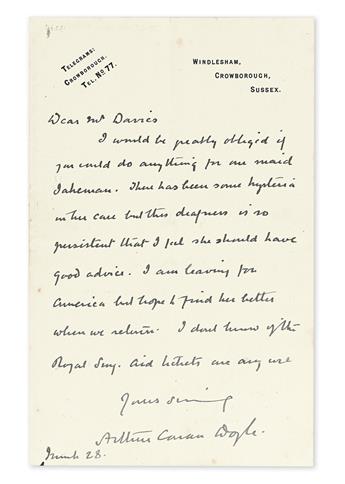 TELEGRAMS:
CROWBOROUGH.
TEL. No 77.
WINDLESHAM,
CROWBOROUGH,
SUSSEX.
Dear Mr Davies
I would be greatly obliged if
you could do anything for our maid
Jakeman. There has been some hysteria
in her case but this deafness is so
persistent that I feel she should have
good advice. I am leaving for
America but hope to find her better
when we return. I dont know if the
Royal Surg. Aid tickets are any use
Yours sincerely
Arthur Conan Doyle.
March 28.